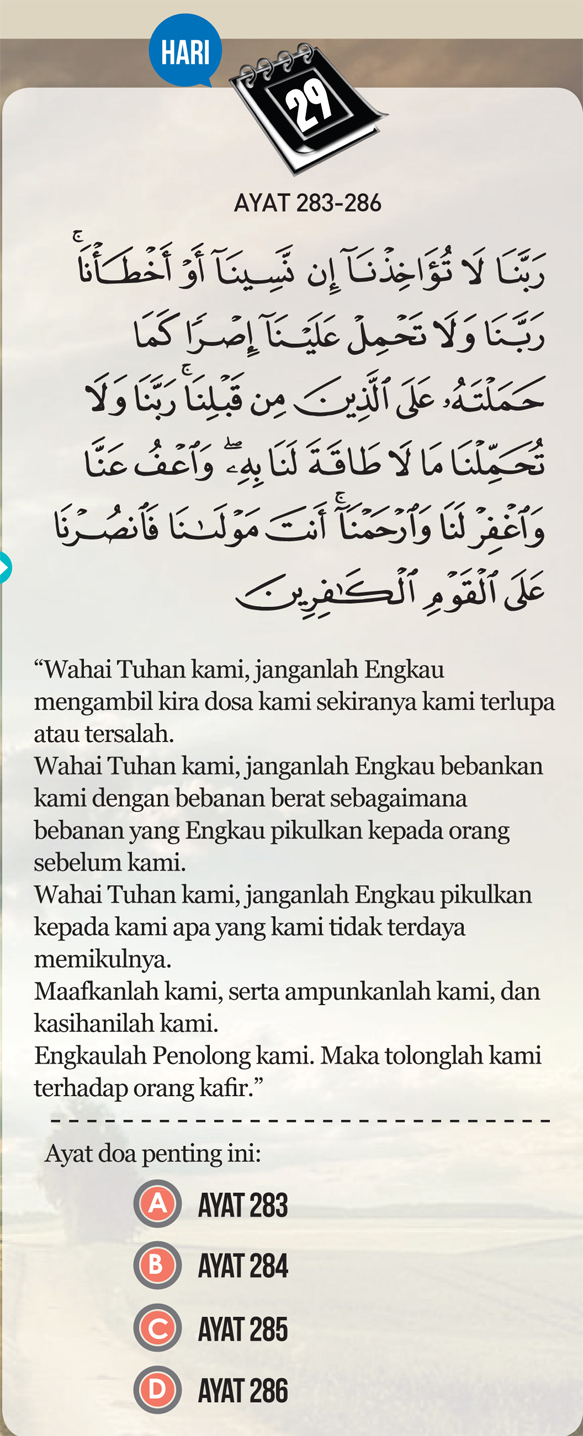 HARI
29
AYAT 283-286
رَبَّنَا لَا تُؤَاخِذْنَآ إِن نَّسِينَآ أَوْ أَخْطَأْنَا ۚ
رَبَّنَا وَلَا تَحْمِلْ عَلَيْنَآ إِصْرًا كَمَا
حَمَلْتَهُۥ عَلَى ٱلَّذِينَ مِن قَبْلِنَا ۚ رَبَّنَا وَلَا
تُحَمِّلْنَا مَا لَا طَاقَةَ لَنَا بِهِۦ ۖ وَٱعْفُ عَنَّا
وَٱغْفِرْ لَنَا وَٱرْحَمْنَآ ۚ أَنتَ مَوْلَىٰنَا فَٱنصُرْنَا
عَلَى ٱلْقَوْمِ ٱلْكَـٰفِرِينَ
“Wahai Tuhan kami, janganlah Engkau
mengambil kira dosa kami sekiranya kami terlupa
atau tersalah.
Wahai Tuhan kami, janganlah Engkau bebankan
kami dengan bebanan berat sebagaimana
bebanan yang Engkau pikulkan kepada orang
sebelum kami.
Wahai Tuhan kami, janganlah Engkau pikulkan
kepada kami apa yang kami tidak terdaya
memikulnya.
Maafkanlah kami, serta ampunkanlah kami, dan
kasihanilah kami.
Engkaulah Penolong kami. Maka tolonglah kami
terhadap orang kafir.”
Ayat doa penting ini:
A AYAT 283
B AYAT 284
C AYAT 285
D AYAT 286